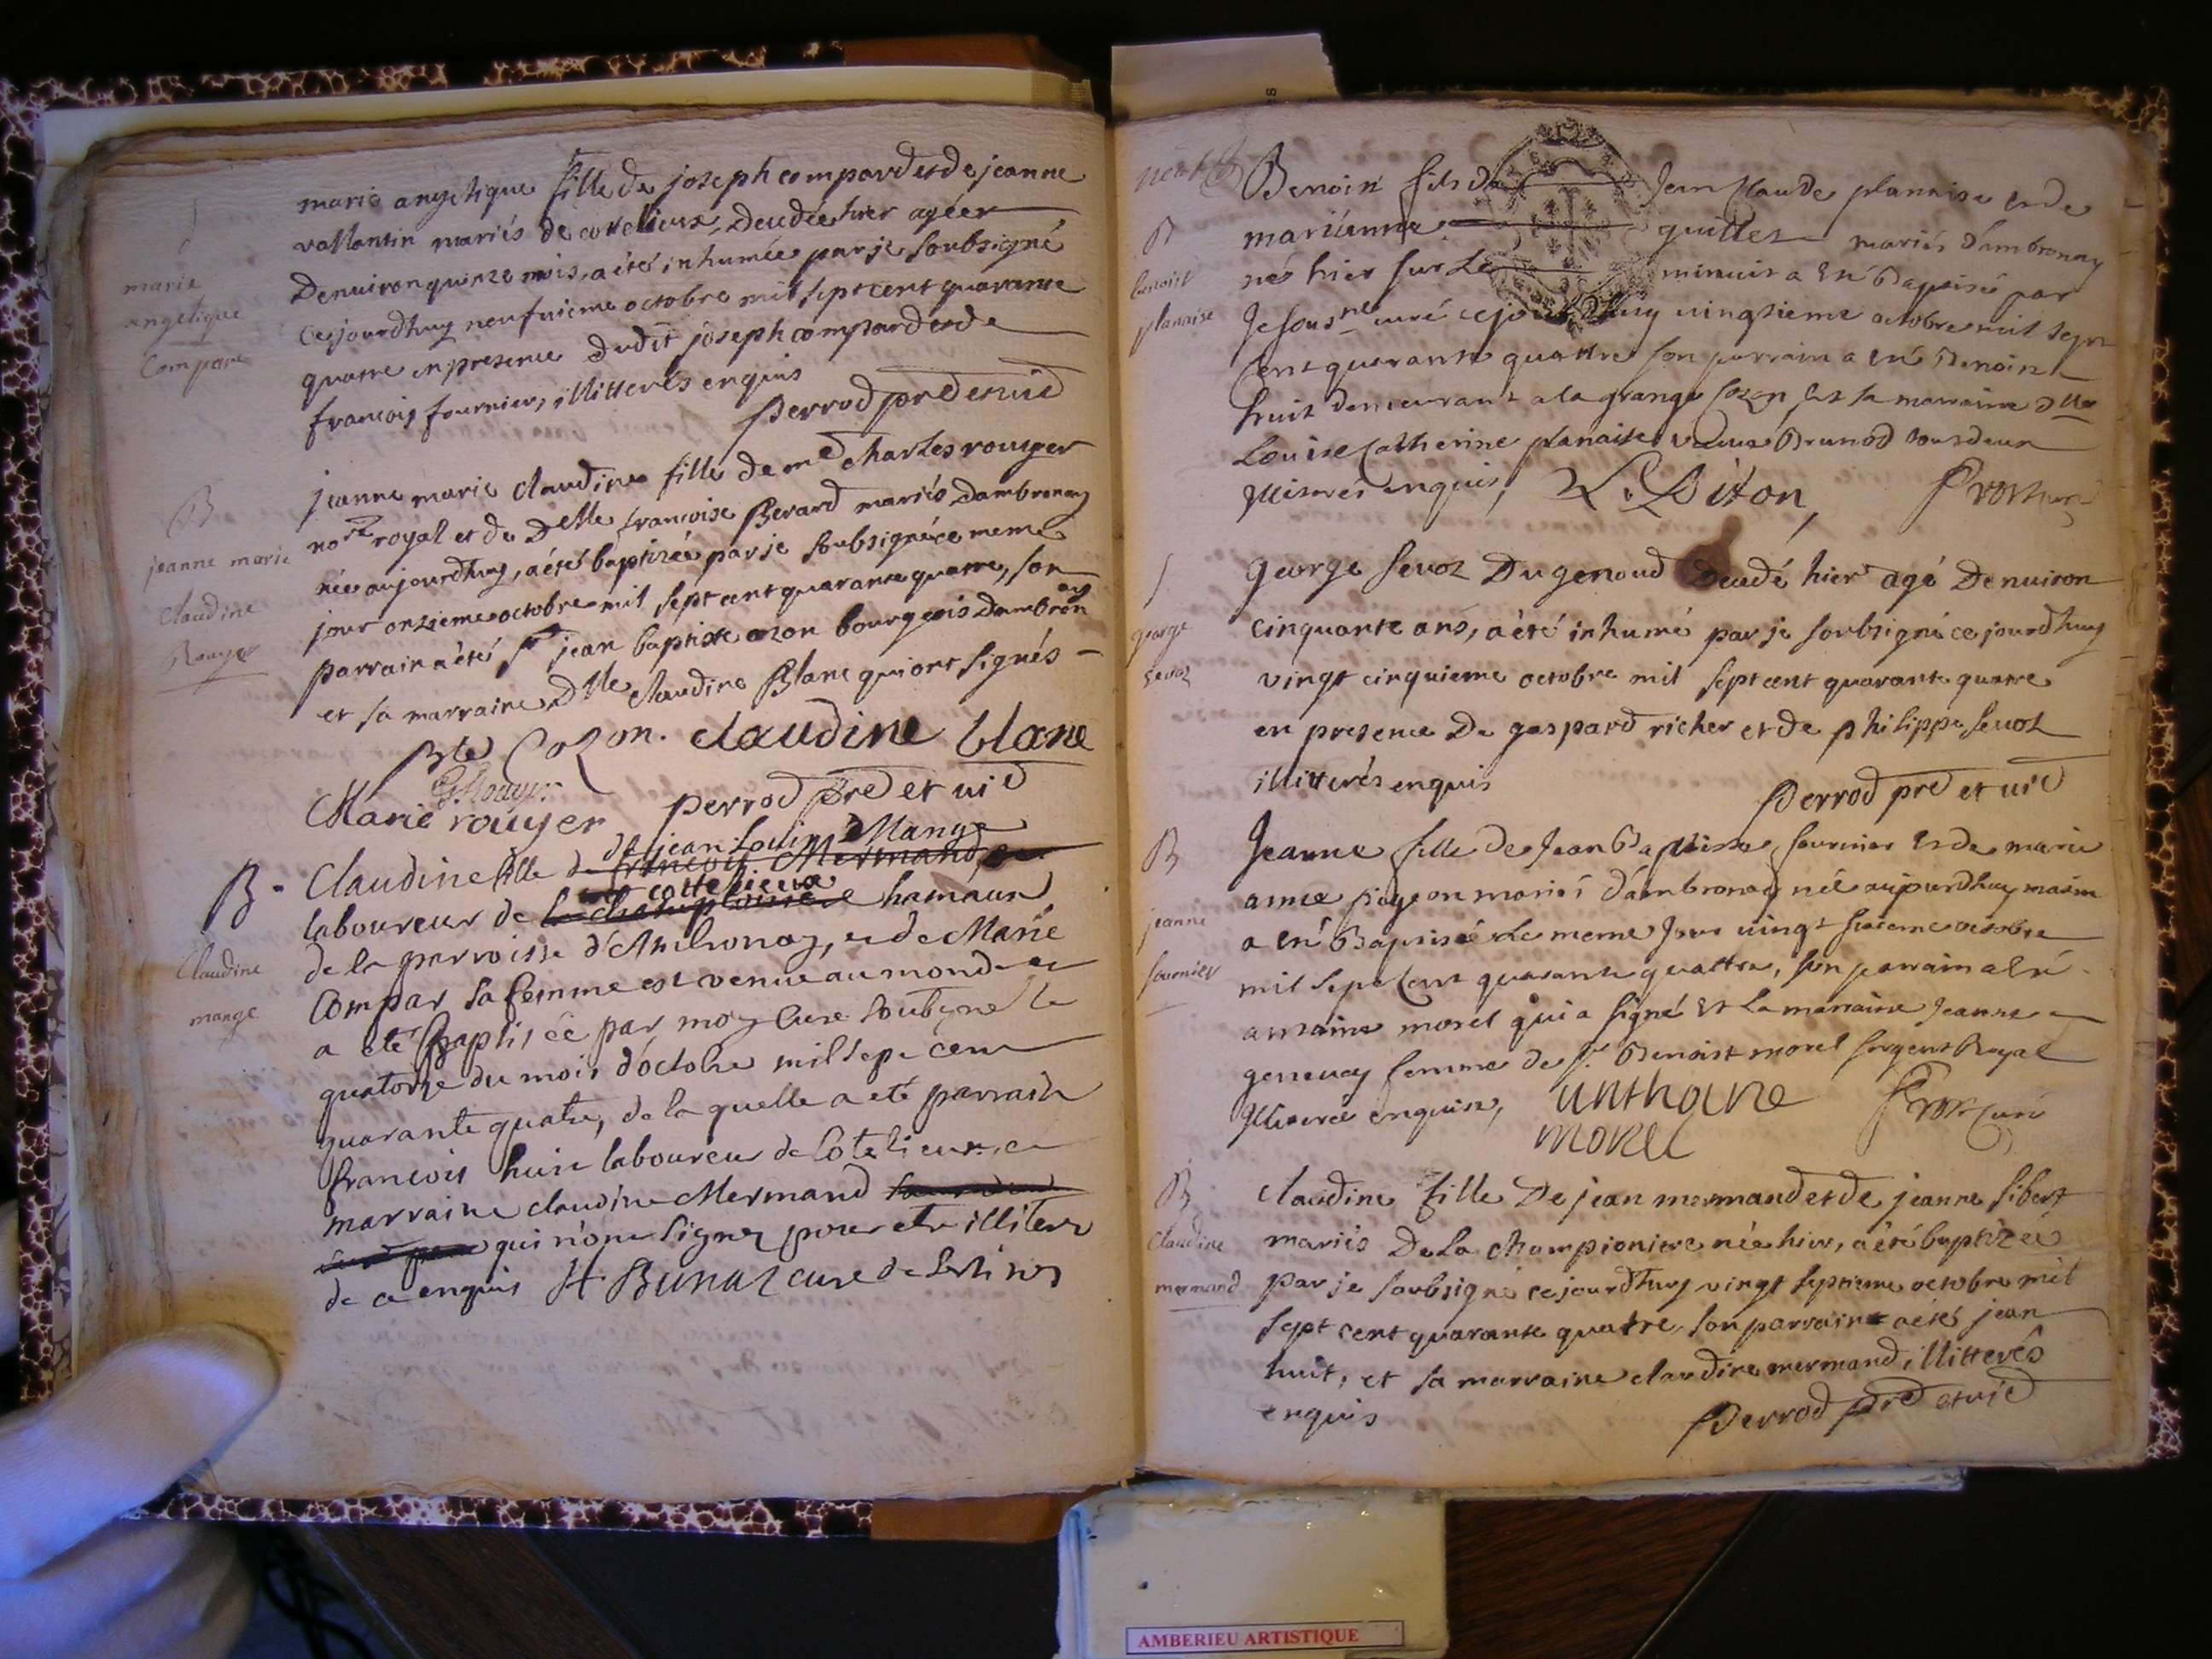 marie
angelique
Compare
marie angelique fille de joseph compard et de jeanne
vallantin mariés de cottelieux, decedée hier agéer
denuiron quinze mois, a été inhumée par je soubsigné
ce jourdhuy neufuieme octobre mil sept cent quarante
quatre en presence dudit joseph compard et de
francois fournier, illitterés enquis
perrod pre et vic
B
jeanne marie
claudine
Rouyer
jeanne marie claudine fille de me charles rouyer
nore royal et de Delle francoise Berard mariés dambronay
née aujourdhuy, a été baptizée par je soubsigné ce meme
jour onzieme octobre mil sept cent quarante quatre, son
parrain a été sr jean baptiste cozon bourgeois dambronay
et sa marraine Dlle claudine Blanc qui ont signés
Bte Cozon. claudine blanc
G Rouyer
Marie rouyer perrod pre et vic
B.
Claudine
mange
de jean Louis Mange
Claudine fille de francois Mermand et
cottelieux
laboureur de la championiere hamaux
de la parroisse d'Ambronay, et de Marie
Compar sa femme est venue au monde et
a eté Baptisée par moy Cure soubsigné le
quatorze du mois d'octobre mil sept cent
quarante quatre, de la quelle a eté parrain
francois huit laboureur de Cotelieux, et
marraine claudine Mermand
qui n'ont signez pour etre illiterez
de ce enquis H Bunaz cure de
B
benoist
planaise
Benoist fils de Jean Claude plannise et de
marianne guillet mariés d'ambronay
nés hier sur le minuit a Eté Baptisé par
Je sousne curé ce jourdhuy uingtieme octobre mil sept
Cent quarante quattre son parrain a Eté Benoist
huit demeurant a la grange Cozon Et sa marraine Dlle
Louise Catherine planaise veuve Brunod tous deux
illisirés enquis, L. Diton,
george
Sevoz
george Sevoz Dugenoud decedé hier agé denuiron
cinquante ans, a été inhumé par je soubsigné ce jourdhuy
vingt cinquieme octobre mil sept cent quarante quatre
en presence de gaspard richer et de philippe Sevoz
illitterés enquis
perrod pre et vic
B
jeanne
fournier
Jeanne fille de Jean Baptiste fournier et de marie
anne pigeon mariés d'ambronay née aujourdhuy matin
a Eté Baptisée le meme Jour uingt sixieme octobre
mil sept Cent quarante quattre, son parrain a Eté
antoine morel qui a signé Et La marraine Jeanne
geneuey femme de Sr. Benoist morel sergent Royal
illiterée enquise, anthoine
morel
B
Claudine
mermand
claudine fille de jean mermand et de jeanne sibert
mariés de la championiere née hier, a été baptizée
par je soubsigné ce jourdhuy vingt septieme octobre mil
sept cent quarante quatre, son parrain a été jean
huit, et sa marraine claudine mermand, illitterés
enquis
perrod pre et vic
AMBERIEU ARTISTIQUE